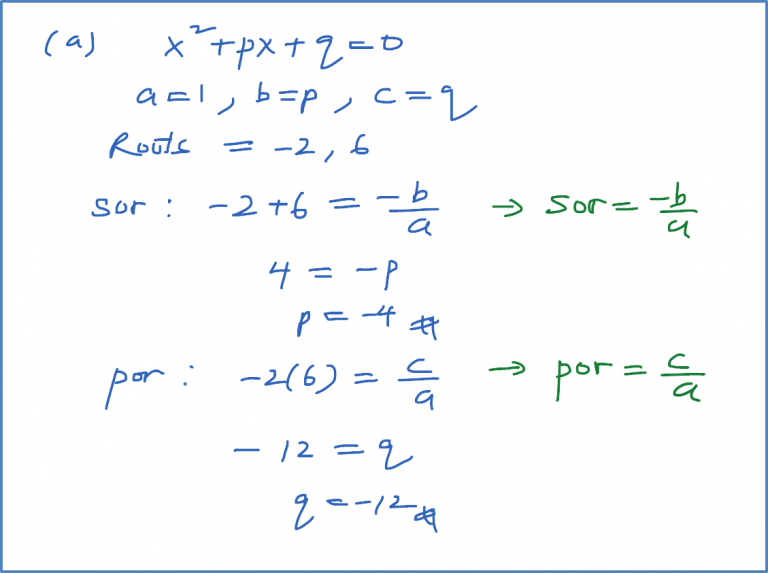 (a) x²+px+q=0
a=1, b=p, c=q
Roots = -2, 6
sor: -2+6 = -b/a → sor = -b/a
4 = -p
p = -4 #
por: -2(6) = c/a → por = c/a
-12 = q
q = -12 #